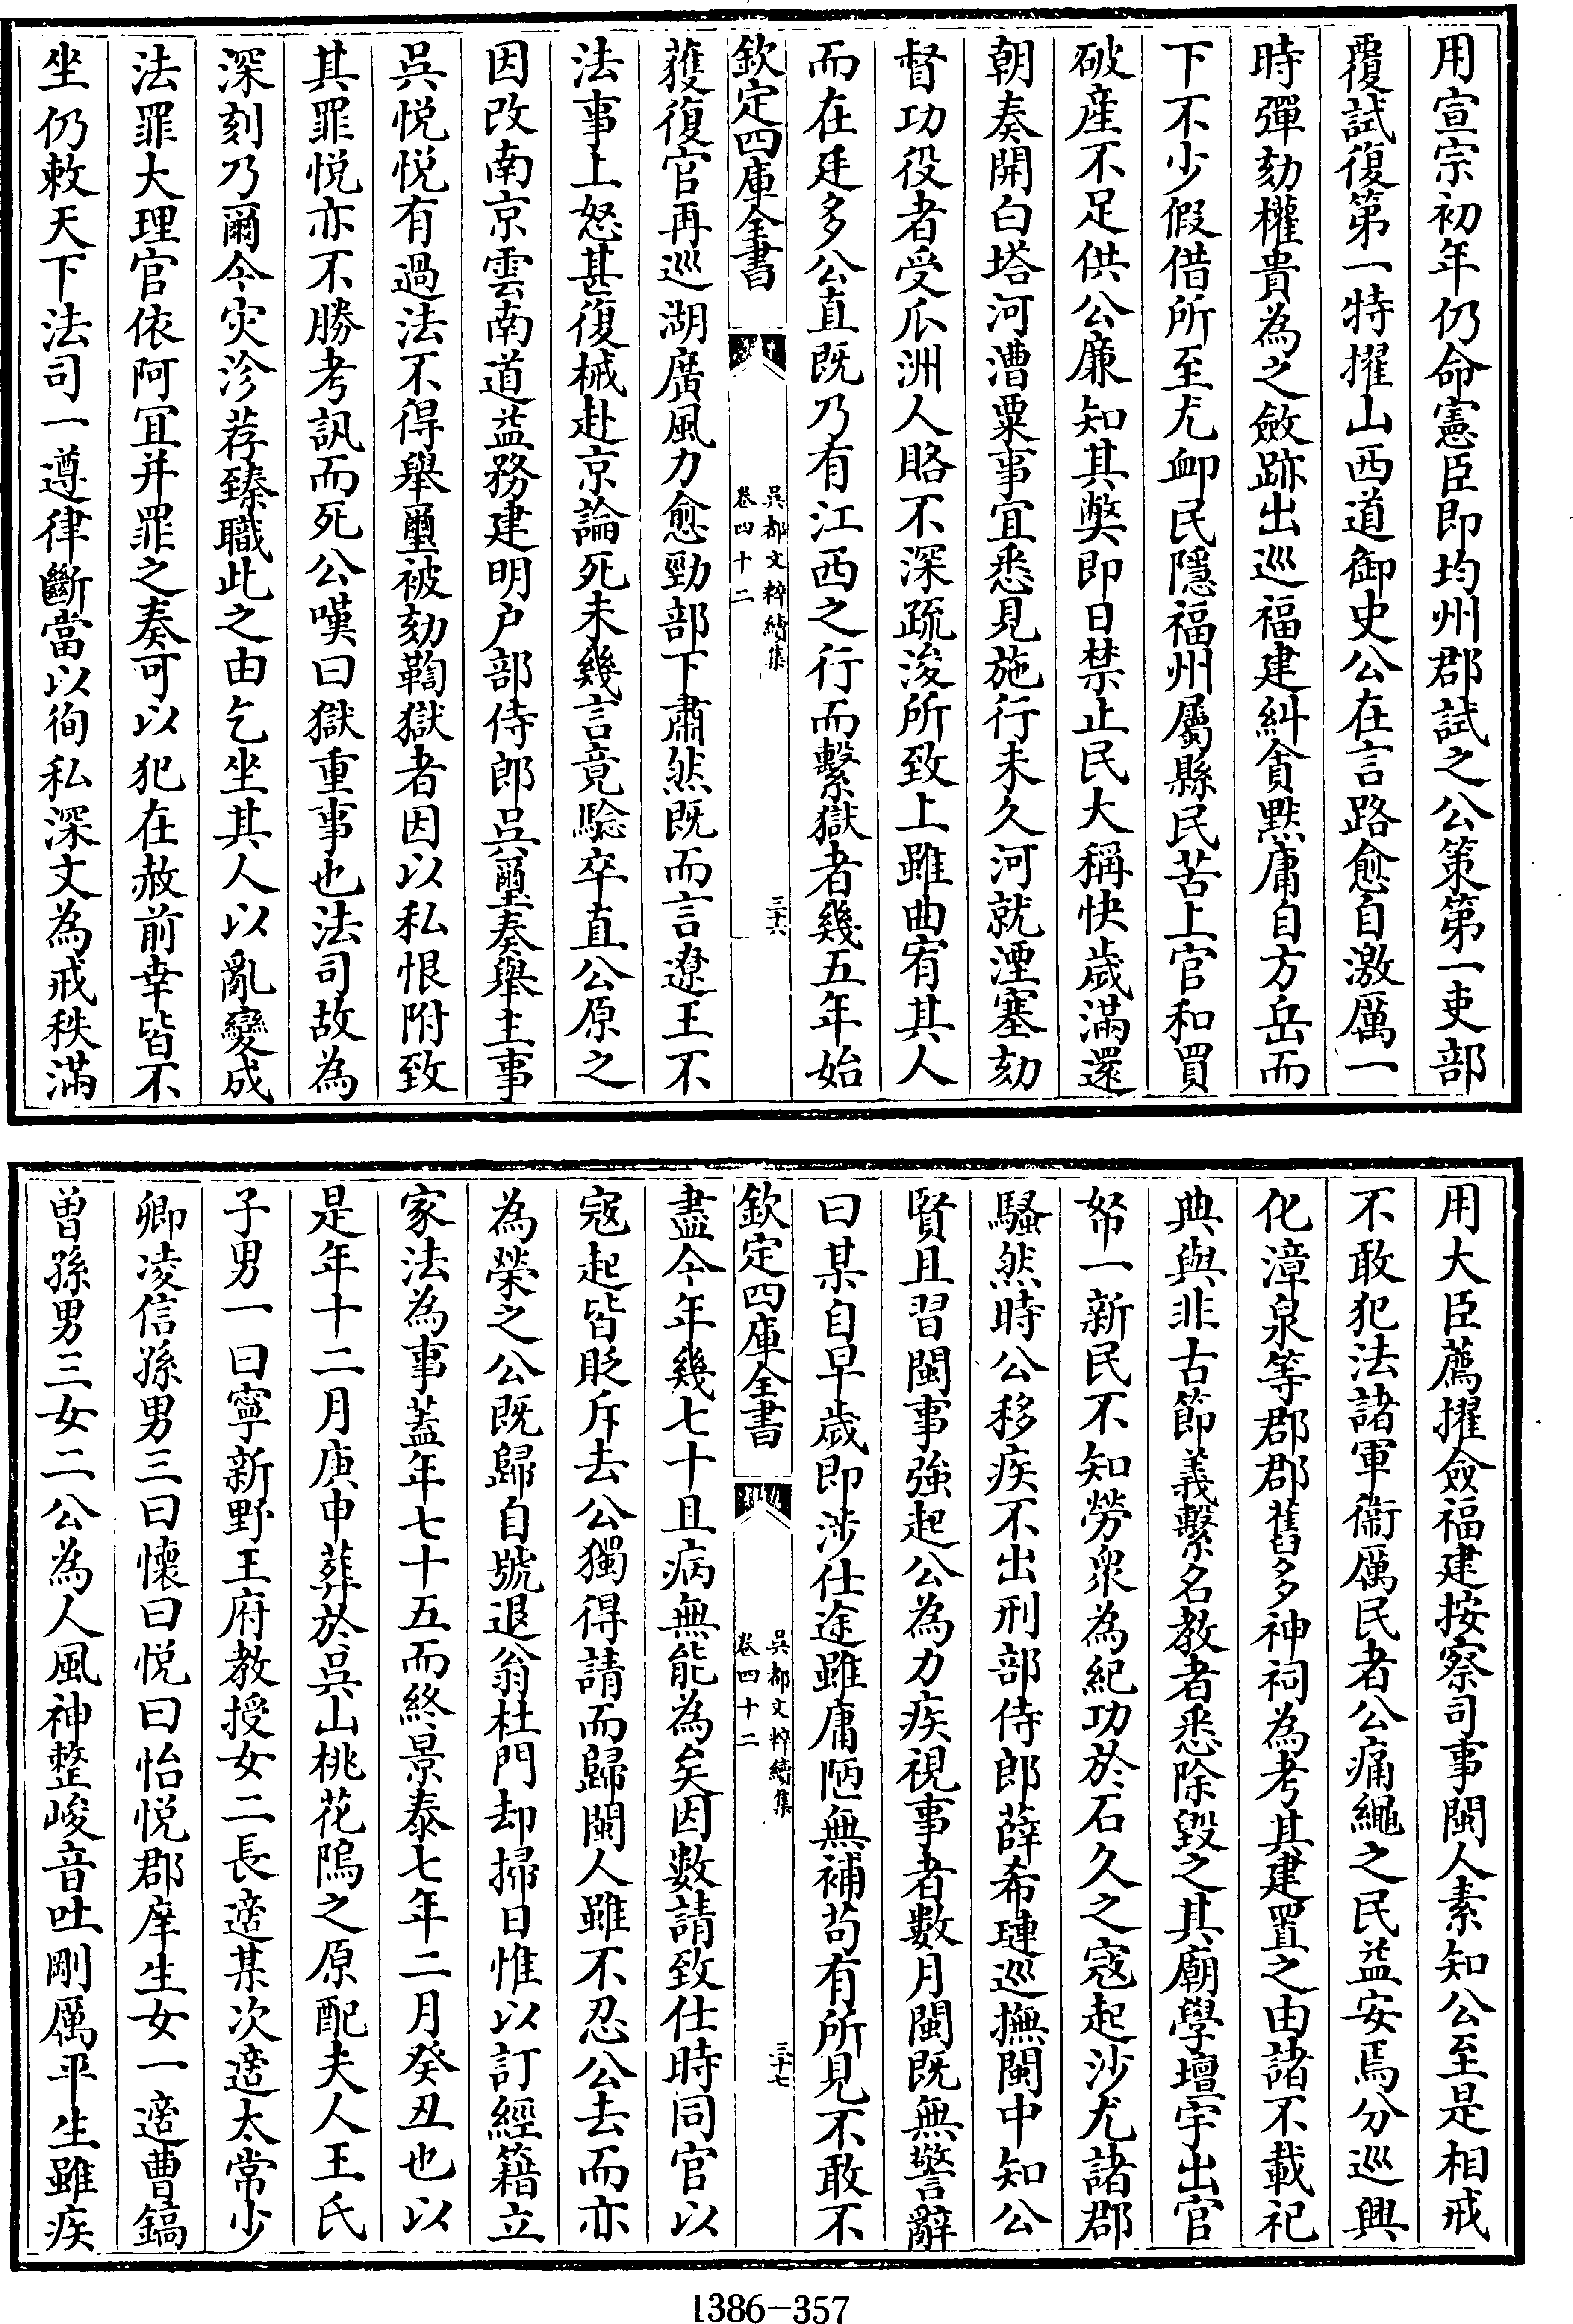 用宣宗初年仍命憲臣即均州郡試之公策第一吏部
覆試復第一特擢山西道御史公在言路愈自激厲一
時彈劾權貴為之斂跡出巡福建糾貪黙庸自方岳而
下不少假借所至尤䘏民隱福州屬縣民苦上官和買
破産不足供公廉知其獘即日禁止民大稱快歲滿還
朝奏開白塔河漕粟事宜悉見施行未久河就湮塞劾
督功役者受瓜洲人賂不深疏浚所致上雖曲宥其人
而在廷多公直既乃有江西之行而繫獄者幾五年始
欽定四庫全書
吳都文粹續集
卷四十二
三十六
獲復官再巡湖廣風力愈勁部下肅然既而言遼王不
法事上怒甚復械赴京論死未幾言竟驗卒直公原之
因改南京雲南道益務建明户部侍郎吳璽奏舉主事
吳悦悦有過法不得舉璽被劾鞫獄者因以私恨附致
其罪悦亦不勝考訊而死公嘆曰獄重事也法司故為
深刻乃爾今灾沴荐臻職此之由乞坐其人以亂變成
法罪大理官依阿冝并罪之奏可以犯在赦前幸皆不
坐仍敕天下法司一遵律斷當以徇私深文為戒秩滿
用大臣薦擢僉福建按察司事閩人素知公至是相戒
不敢犯法諸軍衞厲民者公痛繩之民益安焉分巡興
化漳泉等郡郡舊多神祠為考其建置之由諸不載祀
典與非古節義繫名教者悉除毀之其廟學壇宇出官
帑一新民不知勞衆為紀功於石久之寇起沙尤諸郡
騷然時公移疾不出刑部侍郎薛希璉巡撫閩中知公
賢且習閩事強起公為力疾視事者數月閩既無警辭
曰某自早歲即涉仕途雖庸陋無補茍有所見不敢不
欽定四庫全書
吳都文粹續集
卷四十二
三十七
盡今年幾七十且病無能為矣因數請致仕時同官以
寇起皆貶斥去公獨得請而歸閩人雖不忍公去而亦
為榮之公既歸自號退翁杜門却掃日惟以訂經籍立
家法為事蓋年七十五而終景泰七年二月癸丑也以
是年十二月庚申葬於吳山桃花隖之原配夫人王氏
子男一曰寧新野王府教授女二長適某次適太常少
卿凌信孫男三曰懷曰悦曰怡悦郡庠生女一適曹鎬
曽孫男三女二公為人風神整峻音吐剛厲平生雖疾
1386-357